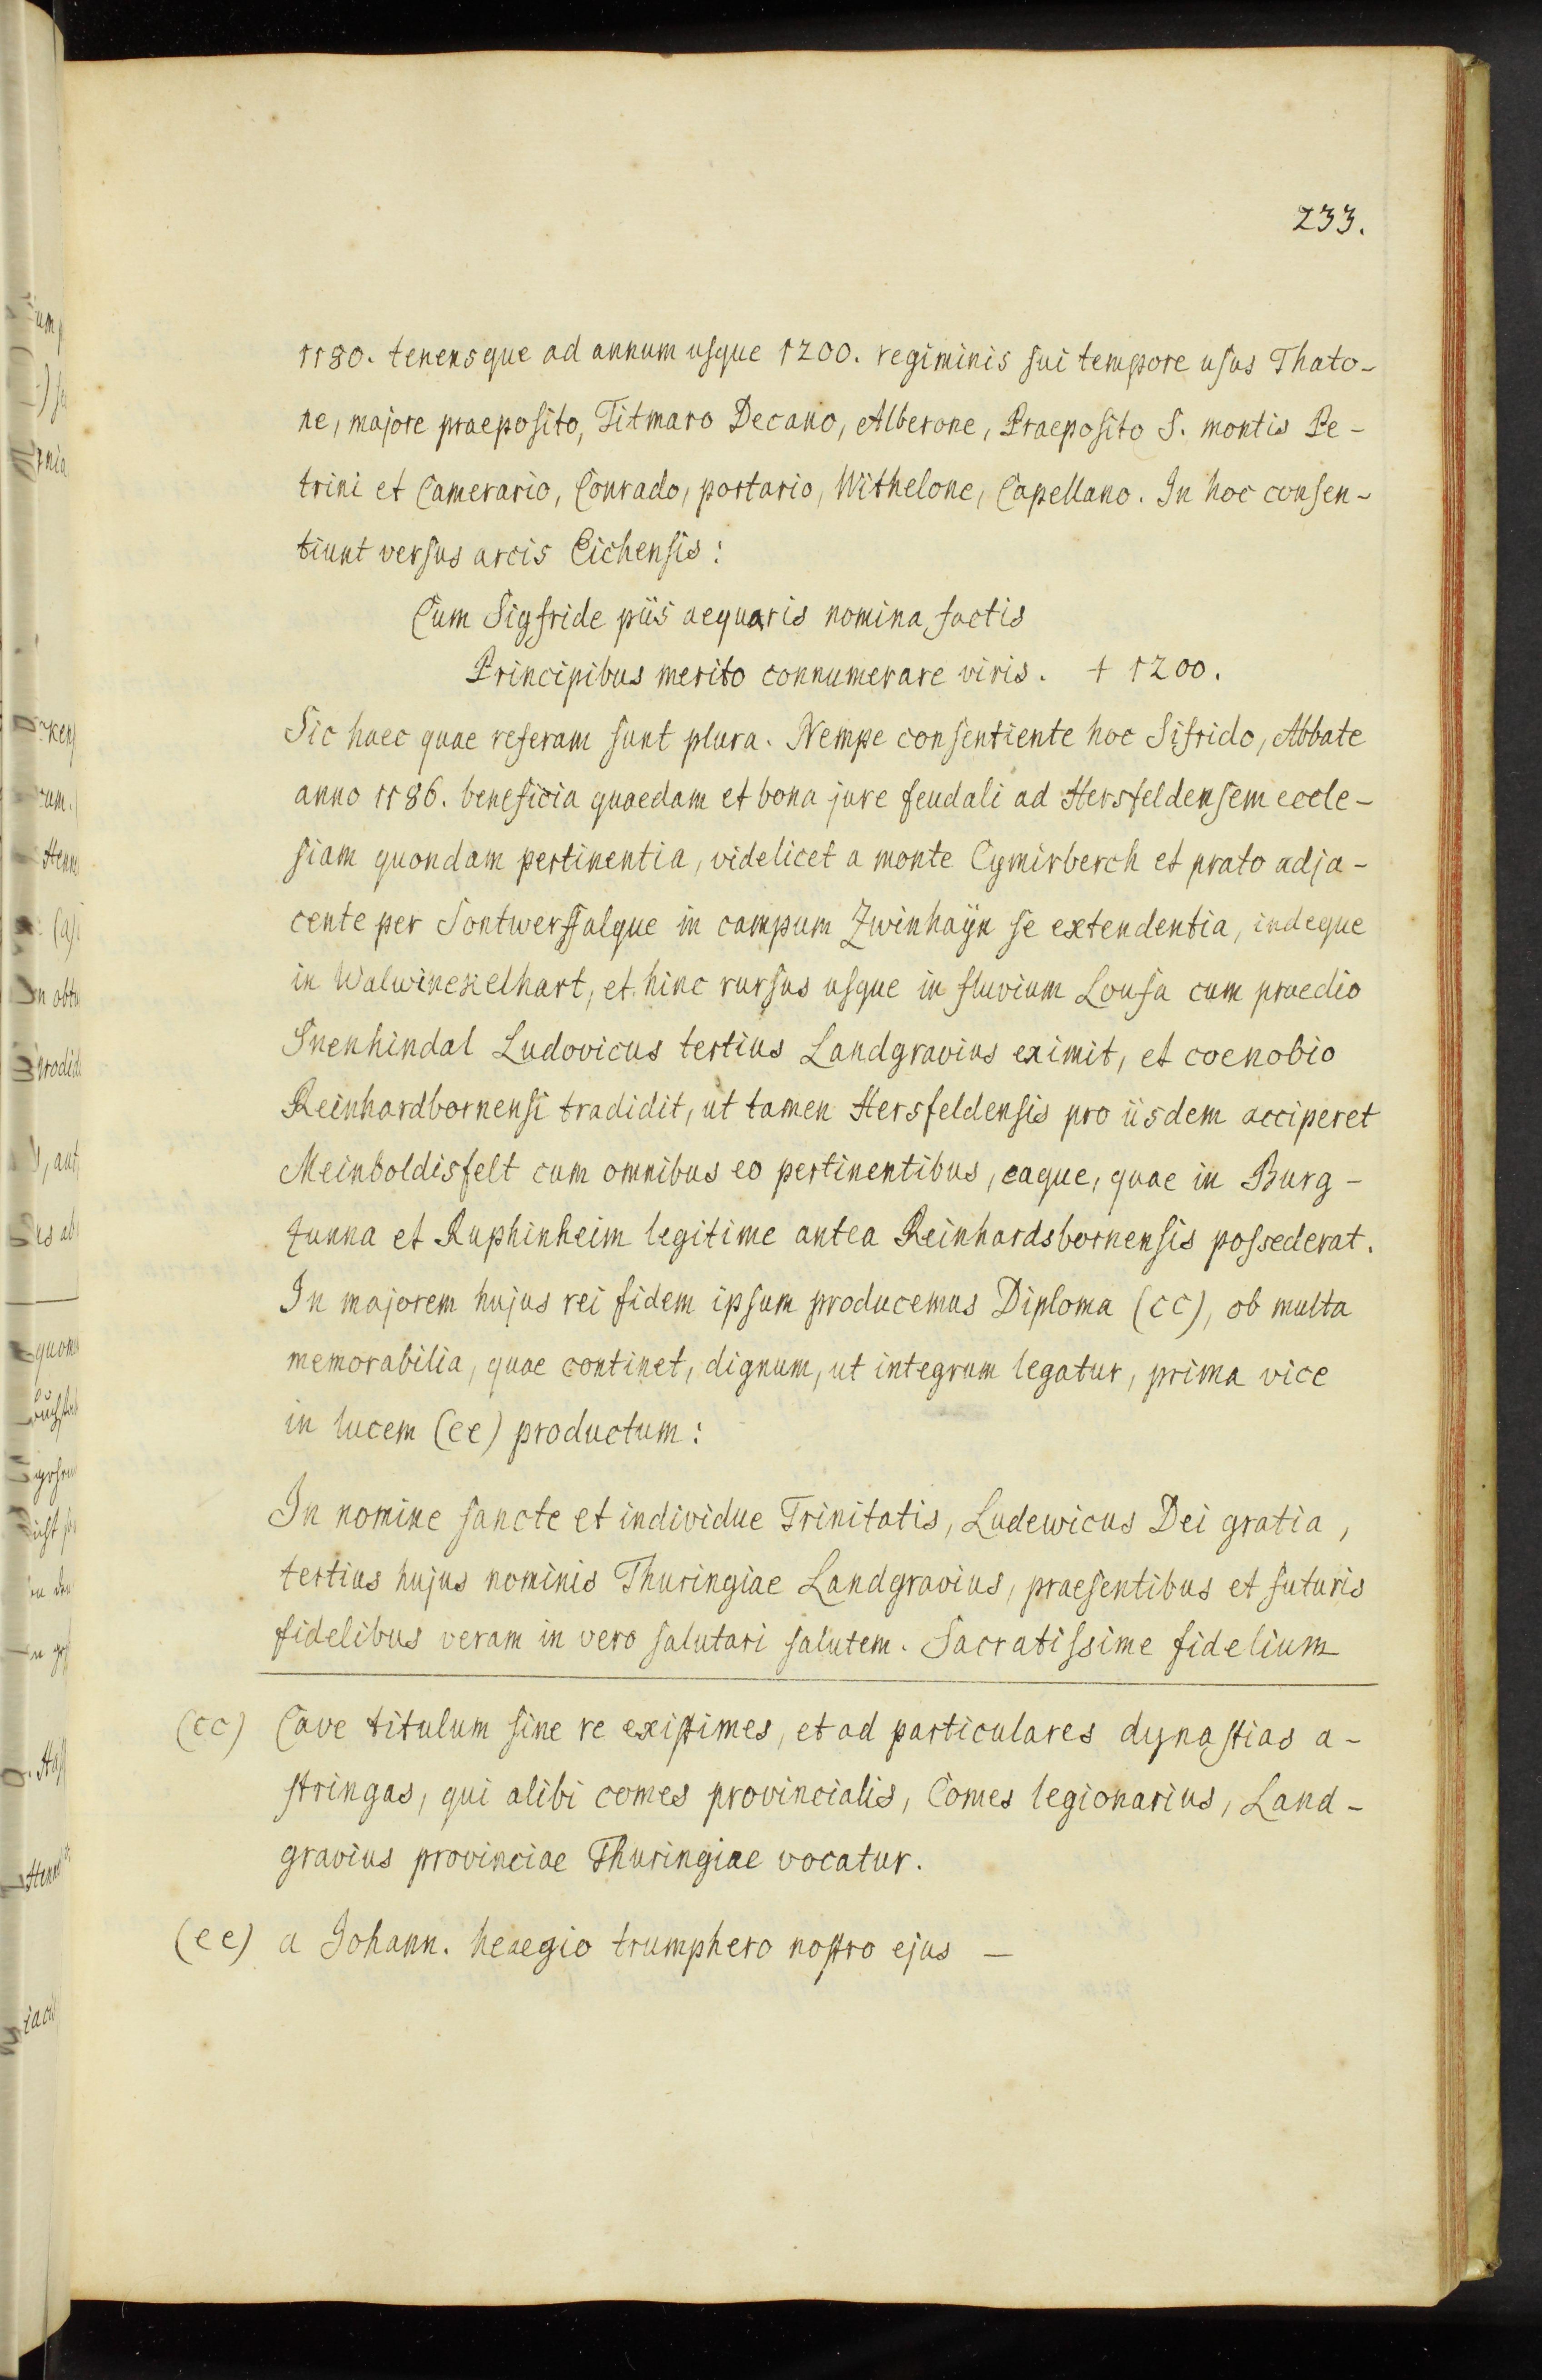 233.
1180. tenensque ad annum usque 1200. regiminis sui tempore usus Thato-
ne, majore praeposito, Titmaro Decano, Alberone, Praeposito S. montis Pe-
trini et Camerario, Conrado, portario, Withelone, Capellano. In hoc consen-
tiunt versus arcis Eichensis:
Cum Sigfride piis aequaris nomina factis
Principibus merito connumerare viris. † 1200.
Sic haec quae referam sunt plura. Nempe consentiente hoc Sifrido, Abbate
anno 1186. beneficia quaedam et bona jure feudali ad Hersfeldensem eccle-
siam quondam pertinentia, videlicet a monte Cymirberch et prato adja-
cente per Sontwerssalque in campum Zwinhaÿn se extendentia, indeque
in Walwinexelhart, et hinc rursus usque in fluvium Lousa cum praedio
Snenhindal Ludovicus tertius Landgravius eximit, et coenobio
Reinhardbornensi tradidit, ut tamen Hersfeldensis pro iisdem acciperet
Meinboldisfelt cum omnibus eo pertinentibus, eaque, quae in Burg-
tunna et Ruphinheim legitime antea Reinhardsbornensis possederat.
In majorem hujus rei fidem ipsum producemus Diploma (cc), ob multa
memorabilia, quae continet, dignum, ut integrum legatur, prima vice
in lucem (ee) productum:
In nomine sancte et individue Trinitatis, Ludewicus Dei gratia,
tertius hujus nominis Thuringiae Landgravius, praesentibus et futuris
fidelibus veram in vero salutari salutem. Sacratissime fidelium
(cc) Cave titulum sine re existimes, et ad particulares dynastias a-
stringas, qui alibi comes provincialis, Comes legionarius, Land-
gravius provinciae Thuringiae vocatur.
(ee) a Johann. heaegio trumphero nostro ejus —